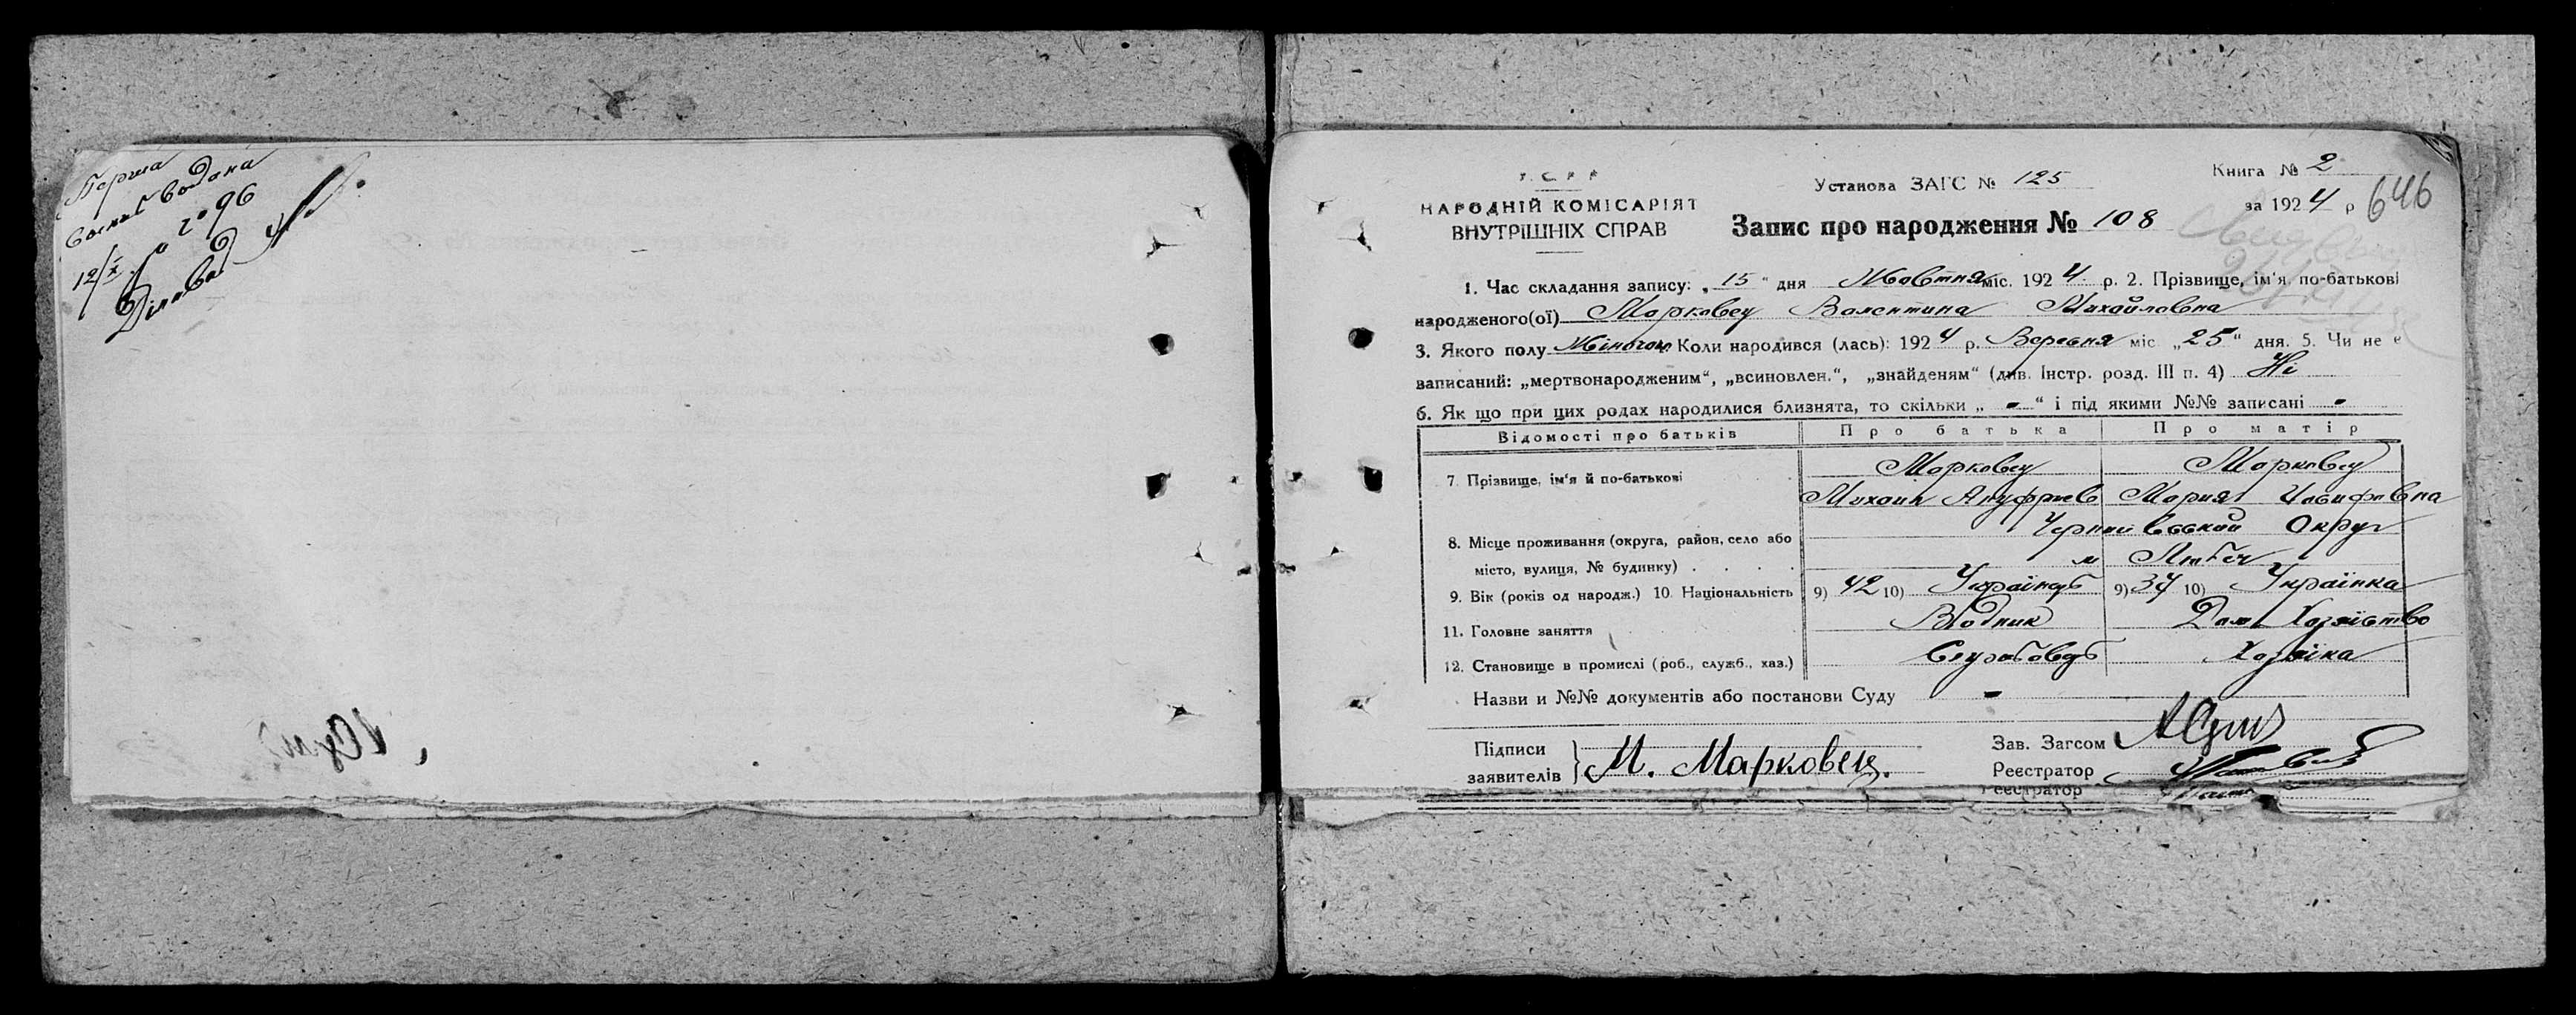 Перша
выпись выдана
12/X р № 96
Діловод
У.С.Р.Р.
НАРОДНІЙ КОМІСАРІЯТ
ВНУТРІШНІХ СПРАВ
Установа ЗАГС № 125
Книга № 2
за 1924 р
646
Запис про народження № 108
1. Час складання запису: „15“ дня Жовтня міс. 1924 р. 2. Прізвище, ім'я, по-батькові
народженого(ої) Марковец Валентина Михайловна
3. Якого полу Жіночого Коли народився (лась): 1924 р. Вересня міс „25“ дня. 5. Чи не є
записаний: „мертвонародженим“, „всиновлен.“, „знайденям“ (див. Інстр. розд. III п. 4) Ні
6. Як що при цих родах народилися близнята, то скільки „ - “ і під якими №№ записані -
Відомості про батьків Про батька Про матір
7. Прізвище, ім'я й по-батькові
Марковец Марковец
Михаил Ануфриев Мария Иосифовна
8. Місце проживання (округа, район, село або
місто, вулиця, № будинку) . . . .
Чернигівский Округ
м Любеч
9. Вік (років од народж.) 10. Національність 9) 42 10) Українець 9) 34 10) Українка
11. Головне заняття Водник Дом Хозяйство
12. Становище в промислі (роб., служб., хаз.) Служ Хозяіка
Назви и №№ документів або постанови Суду -
Підписи
заявителів } М. Марковец.
Зав. Загсом
Реєстратор
Реєстратор